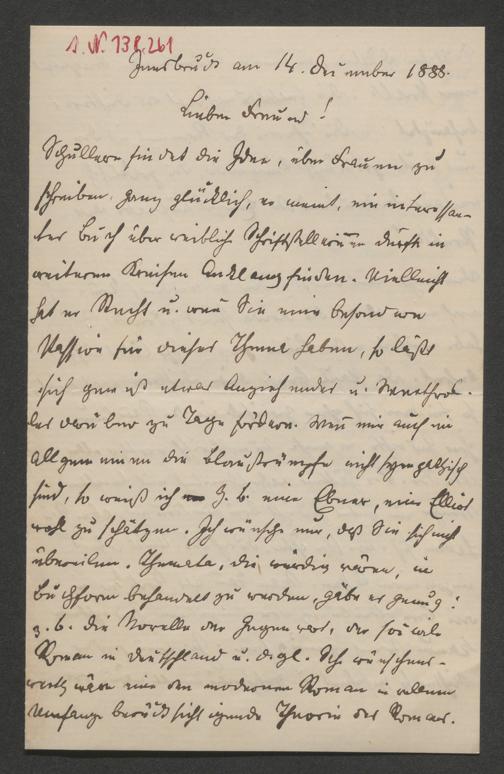 I. N. 138.261
Innsbruck am 14. Dezember 1888.
Lieber Freund!
Schullern findet die Idee, über Frauen zu
schreiben, ganz glücklich, er meint, ein interessan-
tes Buch über weibliche Schriftstellerinnen dürfte in
weiteren Kreisen Anklang finden. Vielleicht
hat er Recht u. wenn Sie eine besondere
Passion für dieses Thema haben, so läßt
sich gewiß etwas Anziehendes u. Wertvol-
les darüber zu Tage fördern. Wenn mir auch im
allgemeinen die Blaustrümpfe nicht sympathisch
sind, so weiß ich z. B. eine Ebner, eine Elliot
wohl zu schätzen. Ich wünsche nur, daß Sie sich nicht
übereilen. Themata, die würdig wären, in
Buchform behandelt zu werden, gäbe es genug:
z. B. die Novelle der Gegenwart, der sociale
Roman in Deutschland u. drgl. Sehr wünschens-
werth wäre eine den modernen Roman in vollem
Umfange berücksichtigende Theorie des Romans.